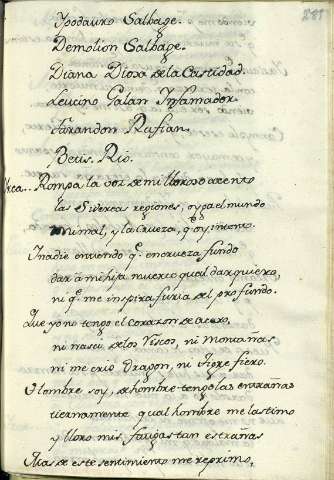 281
Ypodauro Salbage.
Demolion Salbage.
Diana Diosa de la Castidad.
Leucino Galan Infamador.
Farandon Rufian.
Betis. Rio.
Rompa la voz de mi lloroso acento
las Sidereas regiones, oyga el mundo
mi mal, y la crueza, q̃ oy intento.
I nadie entienda q̃ en crueza fundo
dar à mi hija muerte qual dar quiero,
ni q̃ me inspira furia del profundo.
Que yo no tengo el corazon de acero,
ni nasci de los Riscos, ni Montañas
ni me crió Dragon, ni Tigre fiero.
Hombre soy, de hombre tengo las entrañas
tiernamente qual hombre me lastimo
y lloro mis fatigas tan estrañas
Mas de este sentimiento me reprimo,